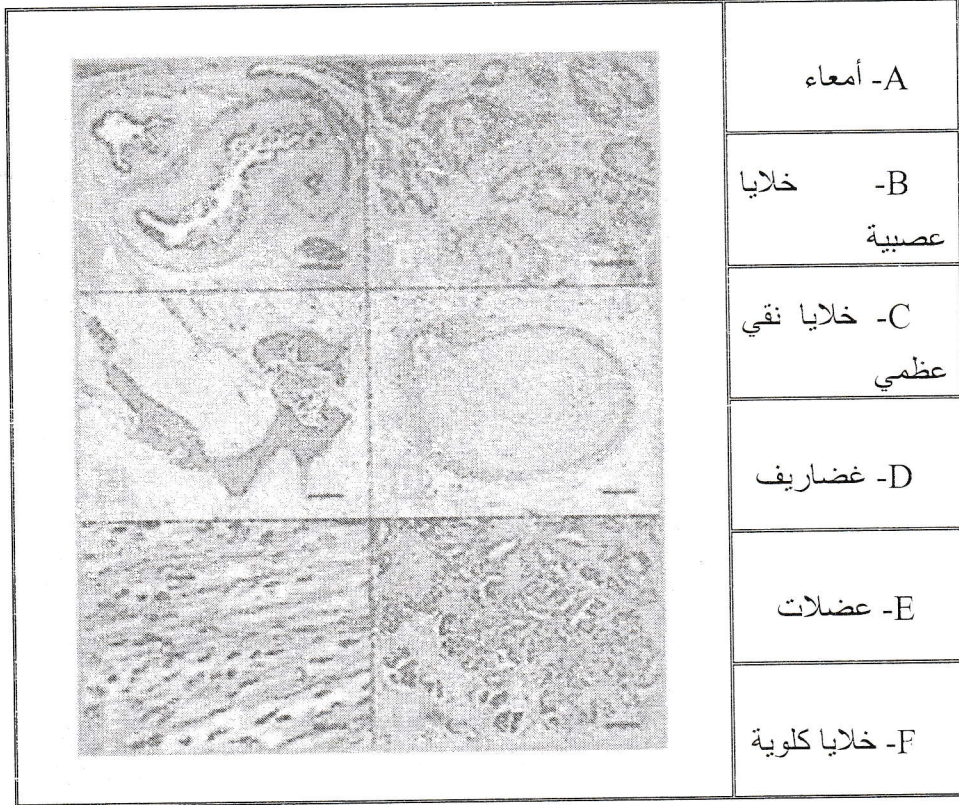 A- أمعاء
B- خلايا
عصبية
C- خلايا نقي
عظمي
D- غضاريف
E- عضلات
F- خلايا كلوية